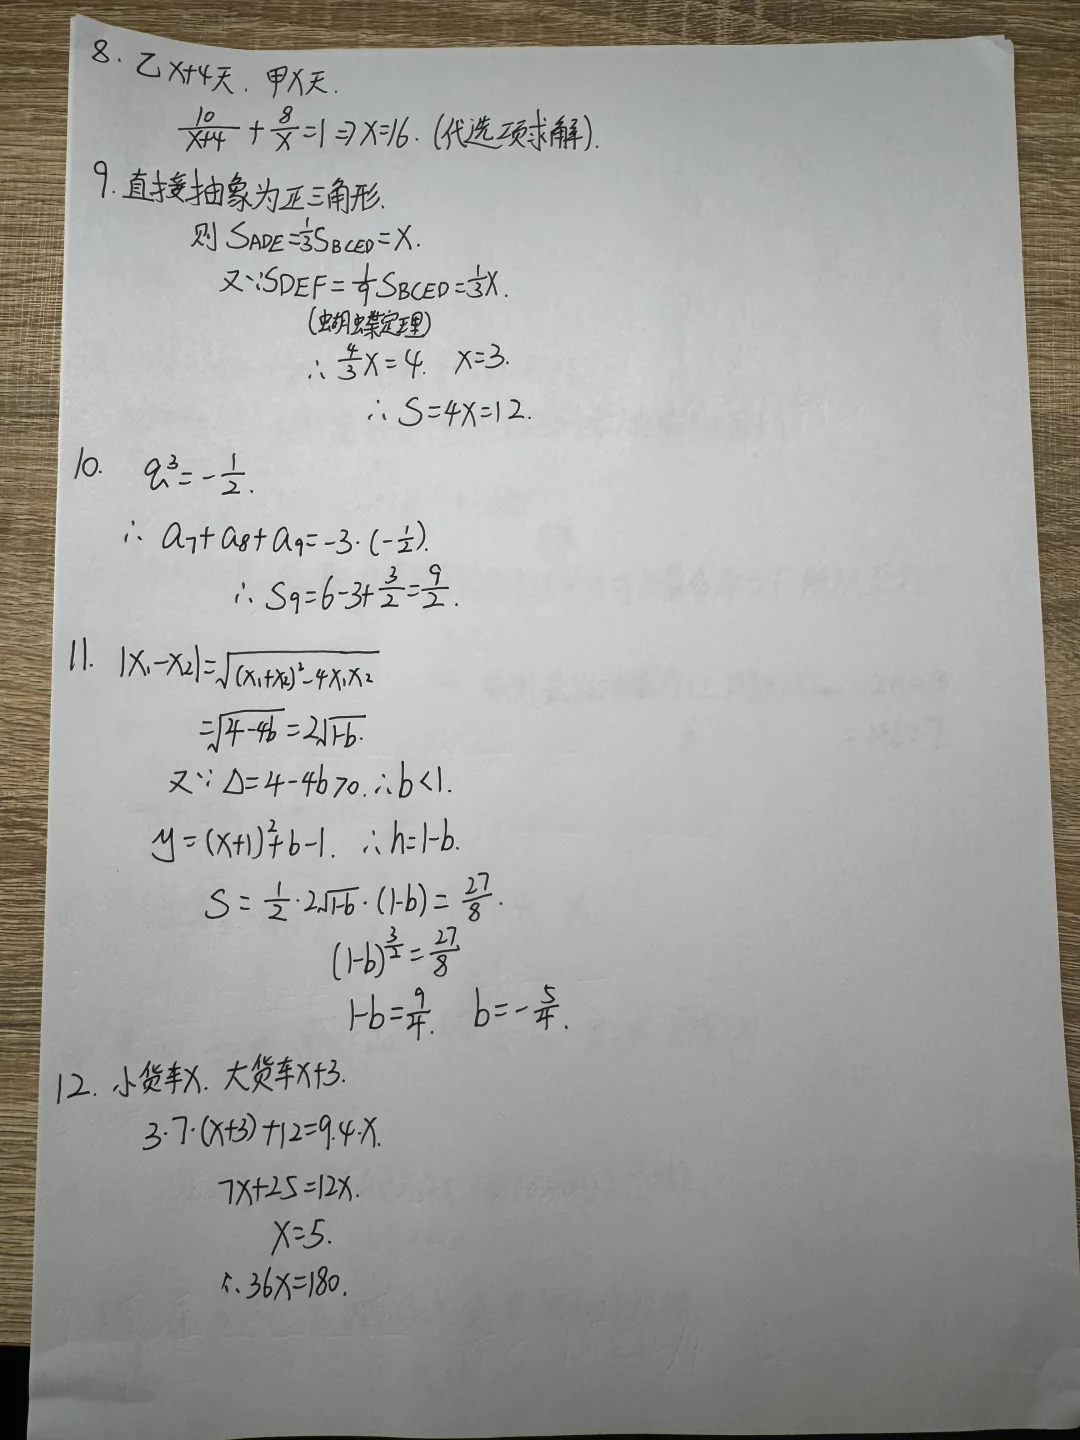 8. 乙x+4天. 甲x天.
10/(x+4) + 8/x = 1 ⇒ x=16. (代选项求解).
9. 直接抽象为正三角形.
则 S_ADE = 1/3 S_BCED = x.
又∵ S_DEF = 1/9 S_BCED = 1/3 x.
(蝴蝶定理)
∴ 4/3 x = 4. x=3.
∴ S=4x=12.
10. q³ = -1/2.
∴ a₇+a₈+a₉ = -3·(-1/2).
∴ S₉ = 6-3+3/2 = 9/2.
11. |x₁-x₂| = √((x₁+x₂)²-4x₁x₂)
= √(4-4b) = 2√(1-b).
又∵ Δ=4-4b>0. ∴ b<1.
y = (x+1)²+b-1. ∴ h=1-b.
S = 1/2·2√(1-b)·(1-b) = 27/8.
(1-b)^(3/2) = 27/8
1-b = 9/4. b = -5/4.
12. 小货车x. 大货车x+3.
3·7·(x+3)+12=9·4·x.
7x+25=12x.
x=5.
∴ 36x=180.